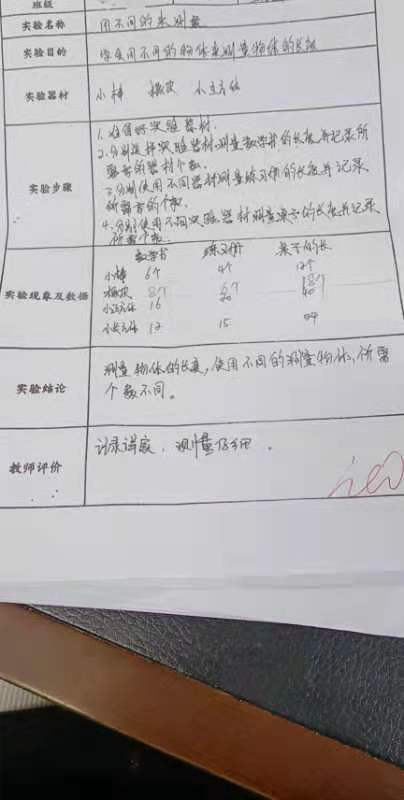 班级
实验名称 用不同的来测量
实验目的 学会用不同的物体来测量物体的长度
实验器材 小棒 橡皮 小立方体
实验步骤
1. 准备好实验器材.
2. 分别选择实验器材测量数学书的长度并记录所
需要的器材个数.
3. 分别使用不同器材测量练习册的长度并记录
所需要的个数.
4. 分别使用不同实验器材测量桌子的长度并记录
所需个数.
实验现象及数据
数学书 练习册 桌子的长
小棒 6个 4个 12个
橡皮 8个 6个 18个
小正方体 16 20 40
小长方体 12 15
实验结论
测量物体的长度, 使用不同的测量物体, 所需
个数不同。
教师评价
记录详实, 测量仔细。